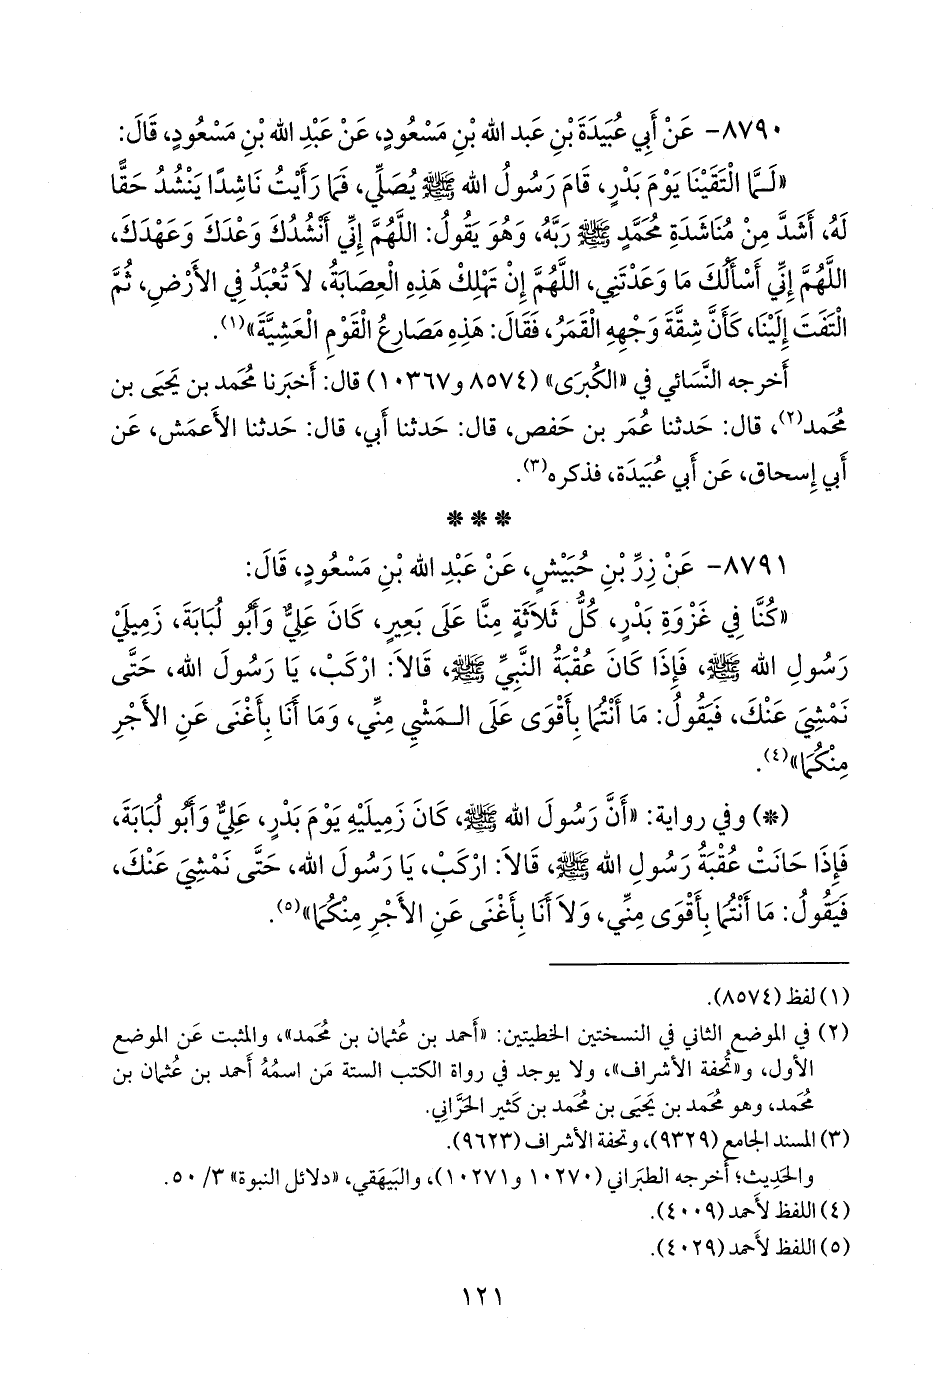 ٨٧٩٠- عَنْ أَبِي عُبَيْدَةَ بْنِ عَبد الله بْنِ مَسْعُودٍ، عَنْ عَبْدِ الله بْنِ مَسْعُودٍ، قَالَ:
«لَـمَّا الْتَقَيْنَا يَوْمَ بَدْرٍ، قَامَ رَسُولُ الله ﷺ يُصَلِّي، فَمَا رَأَيْتُ نَاشِدًا يَنْشُدُ حَقًّا
لَهُ، أَشَدَّ مِنْ مُنَاشَدَةِ مُحَمَّدٍ ﷺ رَبَّهُ، وَهُوَ يَقُولُ: اللَّهُمَّ إِنِّي أَنْشُدُكَ وَعْدَكَ وَعَهْدَكَ،
اللَّهُمَّ إِنِّي أَسْأَلُكَ مَا وَعَدْتَنِي، اللَّهُمَّ إِنْ تَهْلِكْ هَذِهِ الْعِصَابَةُ، لاَ تُعْبَدُ فِي الأَرْضِ، ثُمَّ
الْتَفَتَ إِلَيْنَا، كَأَنَّ شِقَّةَ وَجْهِهِ الْقَمَرُ، فَقَالَ: هَذِهِ مَصَارِعُ الْقَوْمِ الْعَشِيَّةَ»(١).
أَخرجه النَّسَائي في «الكُبرَى» (٨٥٧٤ و١٠٣٦٧) قال: أَخبَرنا مُحَمد بن يَحيَى بن
مُحَمد(٢)، قال: حَدثنا عُمَر بن حَفص، قال: حَدثنا أَبي، قال: حَدثنا الأَعمَش، عَن
أَبي إِسحاق، عَن أَبي عُبَيْدَة، فذكره(٣).
* * *
٨٧٩١- عَنْ زِرِّ بْنِ حُبَيْشٍ، عَنْ عَبْدِ الله بْنِ مَسْعُودٍ، قَالَ:
«كُنَّا فِي غَزْوَةِ بَدْرٍ، كُلُّ ثَلاَثَةٍ مِنَّا عَلَى بَعِيرٍ، كَانَ عَلِيٌّ وَأَبُو لُبَابَةَ، زَمِيلَيْ
رَسُولِ الله ﷺ، فَإِذَا كَانَ عُقْبَةُ النَّبِيِّ ﷺ، قَالاَ: ارْكَبْ، يَا رَسُولَ الله، حَتَّى
نَمْشِيَ عَنْكَ، فَيَقُولُ: مَا أَنْتُمَا بِأَقْوَى عَلَى الـمَشْيِ مِنِّي، وَمَا أَنَا بِأَغْنَى عَنِ الأَجْرِ
مِنْكُمَا»(٤).
(*) وفي رواية: «أَنَّ رَسُولَ الله ﷺ، كَانَ زَمِيلَيْهِ يَوْمَ بَدْرٍ، عَلِيٌّ وَأَبُو لُبَابَةَ،
فَإِذَا حَانَتْ عُقْبَةُ رَسُولِ الله ﷺ، قَالاَ: ارْكَبْ، يَا رَسُولَ الله، حَتَّى نَمْشِيَ عَنْكَ،
فَيَقُولُ: مَا أَنْتُمَا بِأَقْوَى مِنِّي، وَلاَ أَنَا بِأَغْنَى عَنِ الأَجْرِ مِنْكُمَا»(٥).
(١) لفظ (٨٥٧٤).
(٢) في الموضع الثاني في النسختين الخطيتين: «أَحمد بن عُثمان بن مُحَمد»، والمثبت عَن الموضع
الأول، و«تُحفة الأشراف»، ولا يوجد في رواة الكتب الستة مَن اسمُهُ أَحمد بن عُثمان بن
مُحَمد، وهو مُحَمد بن يَحيَى بن مُحَمد بن كَثير الحَرَّاني.
(٣) المسند الجامع (٩٣٢٩)، وتحفة الأشراف (٩٦٢٣).
والحَدِيث؛ أَخرجه الطبَراني (١٠٢٧٠ و١٠٢٧١)، والبَيهَقي، «دلائل النبوة» ٣/ ٥٠.
(٤) اللفظ لأَحمد (٤٠٠٩).
(٥) اللفظ لأَحمد (٤٠٢٩).
١٢١